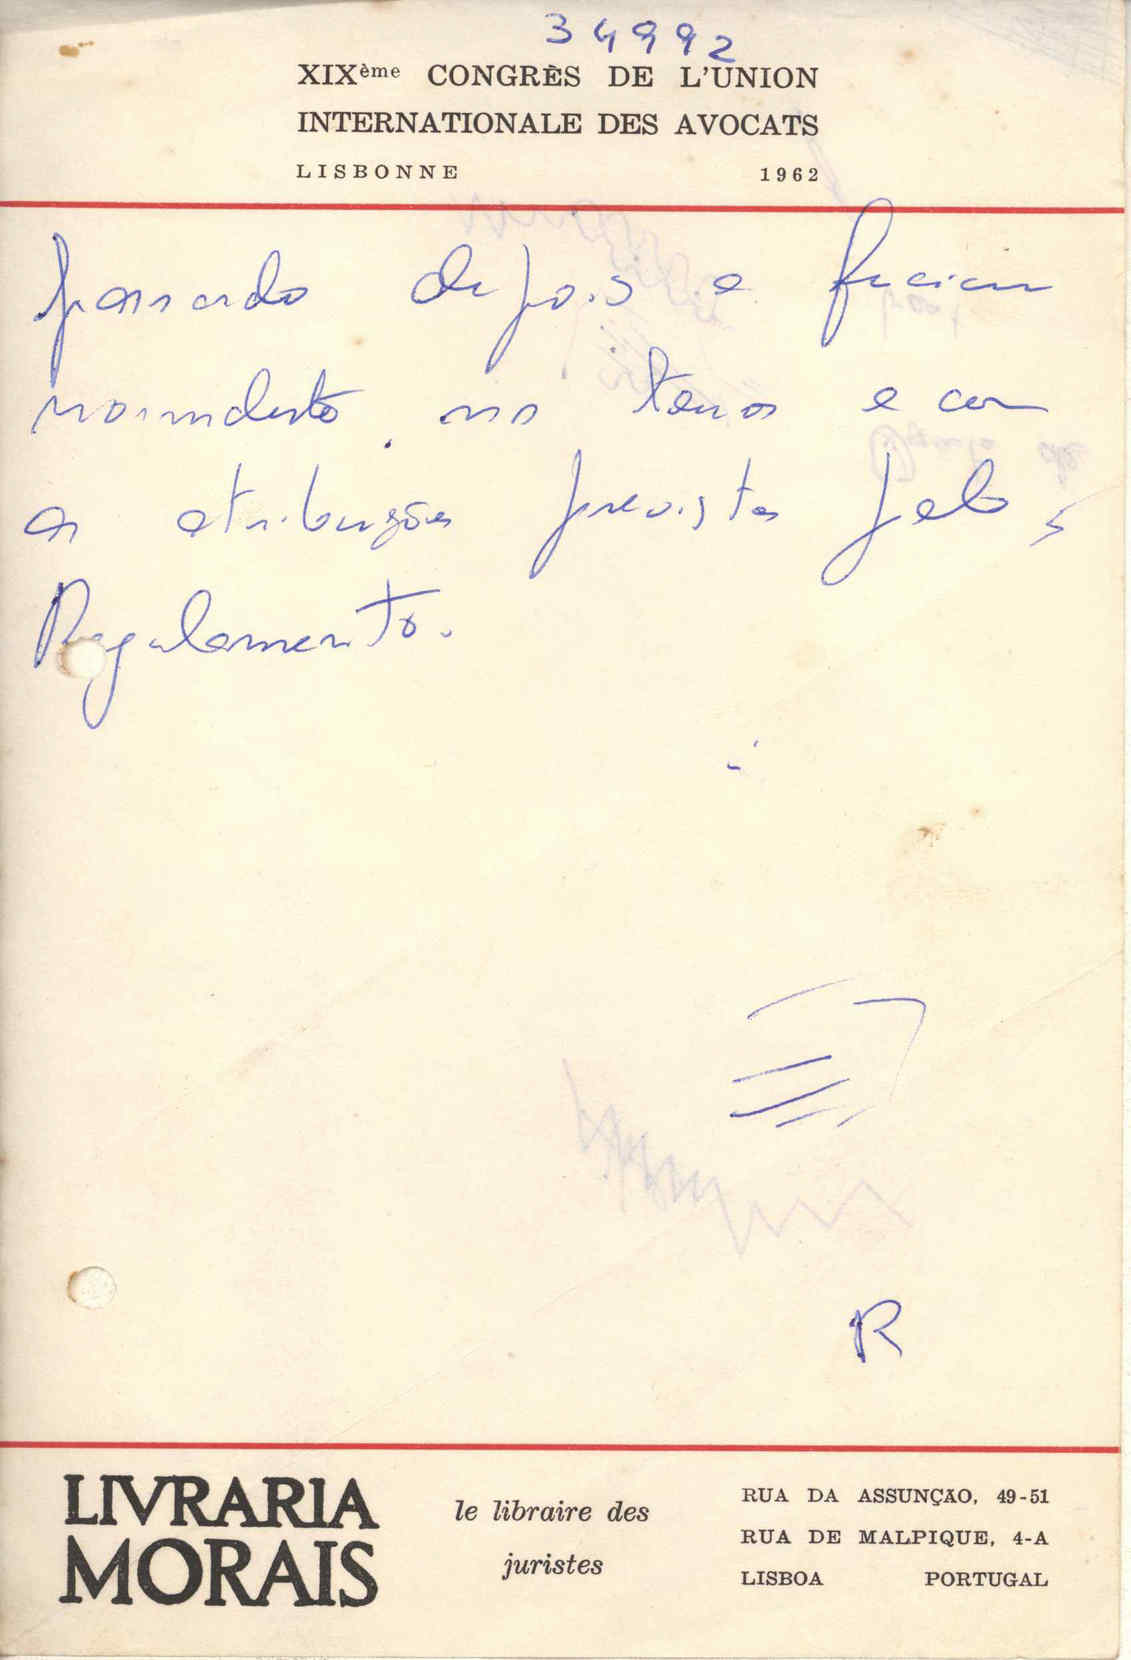 34992
XIXème CONGRÈS DE L'UNION
INTERNATIONALE DES AVOCATS
LISBONNE 1962
passando depois a funcionar
normalmente no temos e com
as atribuições previstas pelo
Regulamento.
R
LIVRARIA
MORAIS
le libraire des
juristes
RUA DA ASSUNÇÃO, 49-51
RUA DE MALPIQUE, 4-A
LISBOA PORTUGAL